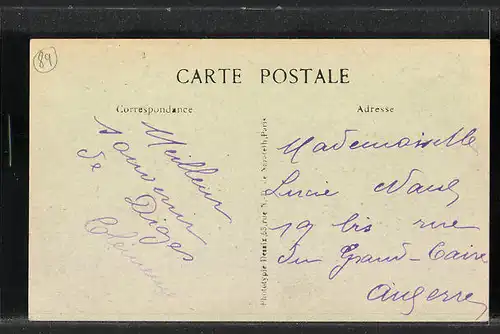 89
CARTE POSTALE
Correspondance
Adresse
Meilleur
souvenir
de Diges
Clémence
Phototypie Desaix 55, rue N.-D. de Nazareth, Paris
Mademoiselle
Lucie
19 bis rue
du Grand-Caire
Auxerre